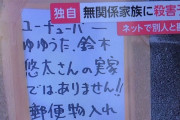 独自
無関係家族に殺害予
ネットで別人と
ユーチューバー
ゆゆうた、鈴木
悠太さんの実家
ではありません!!
郵便物入れ